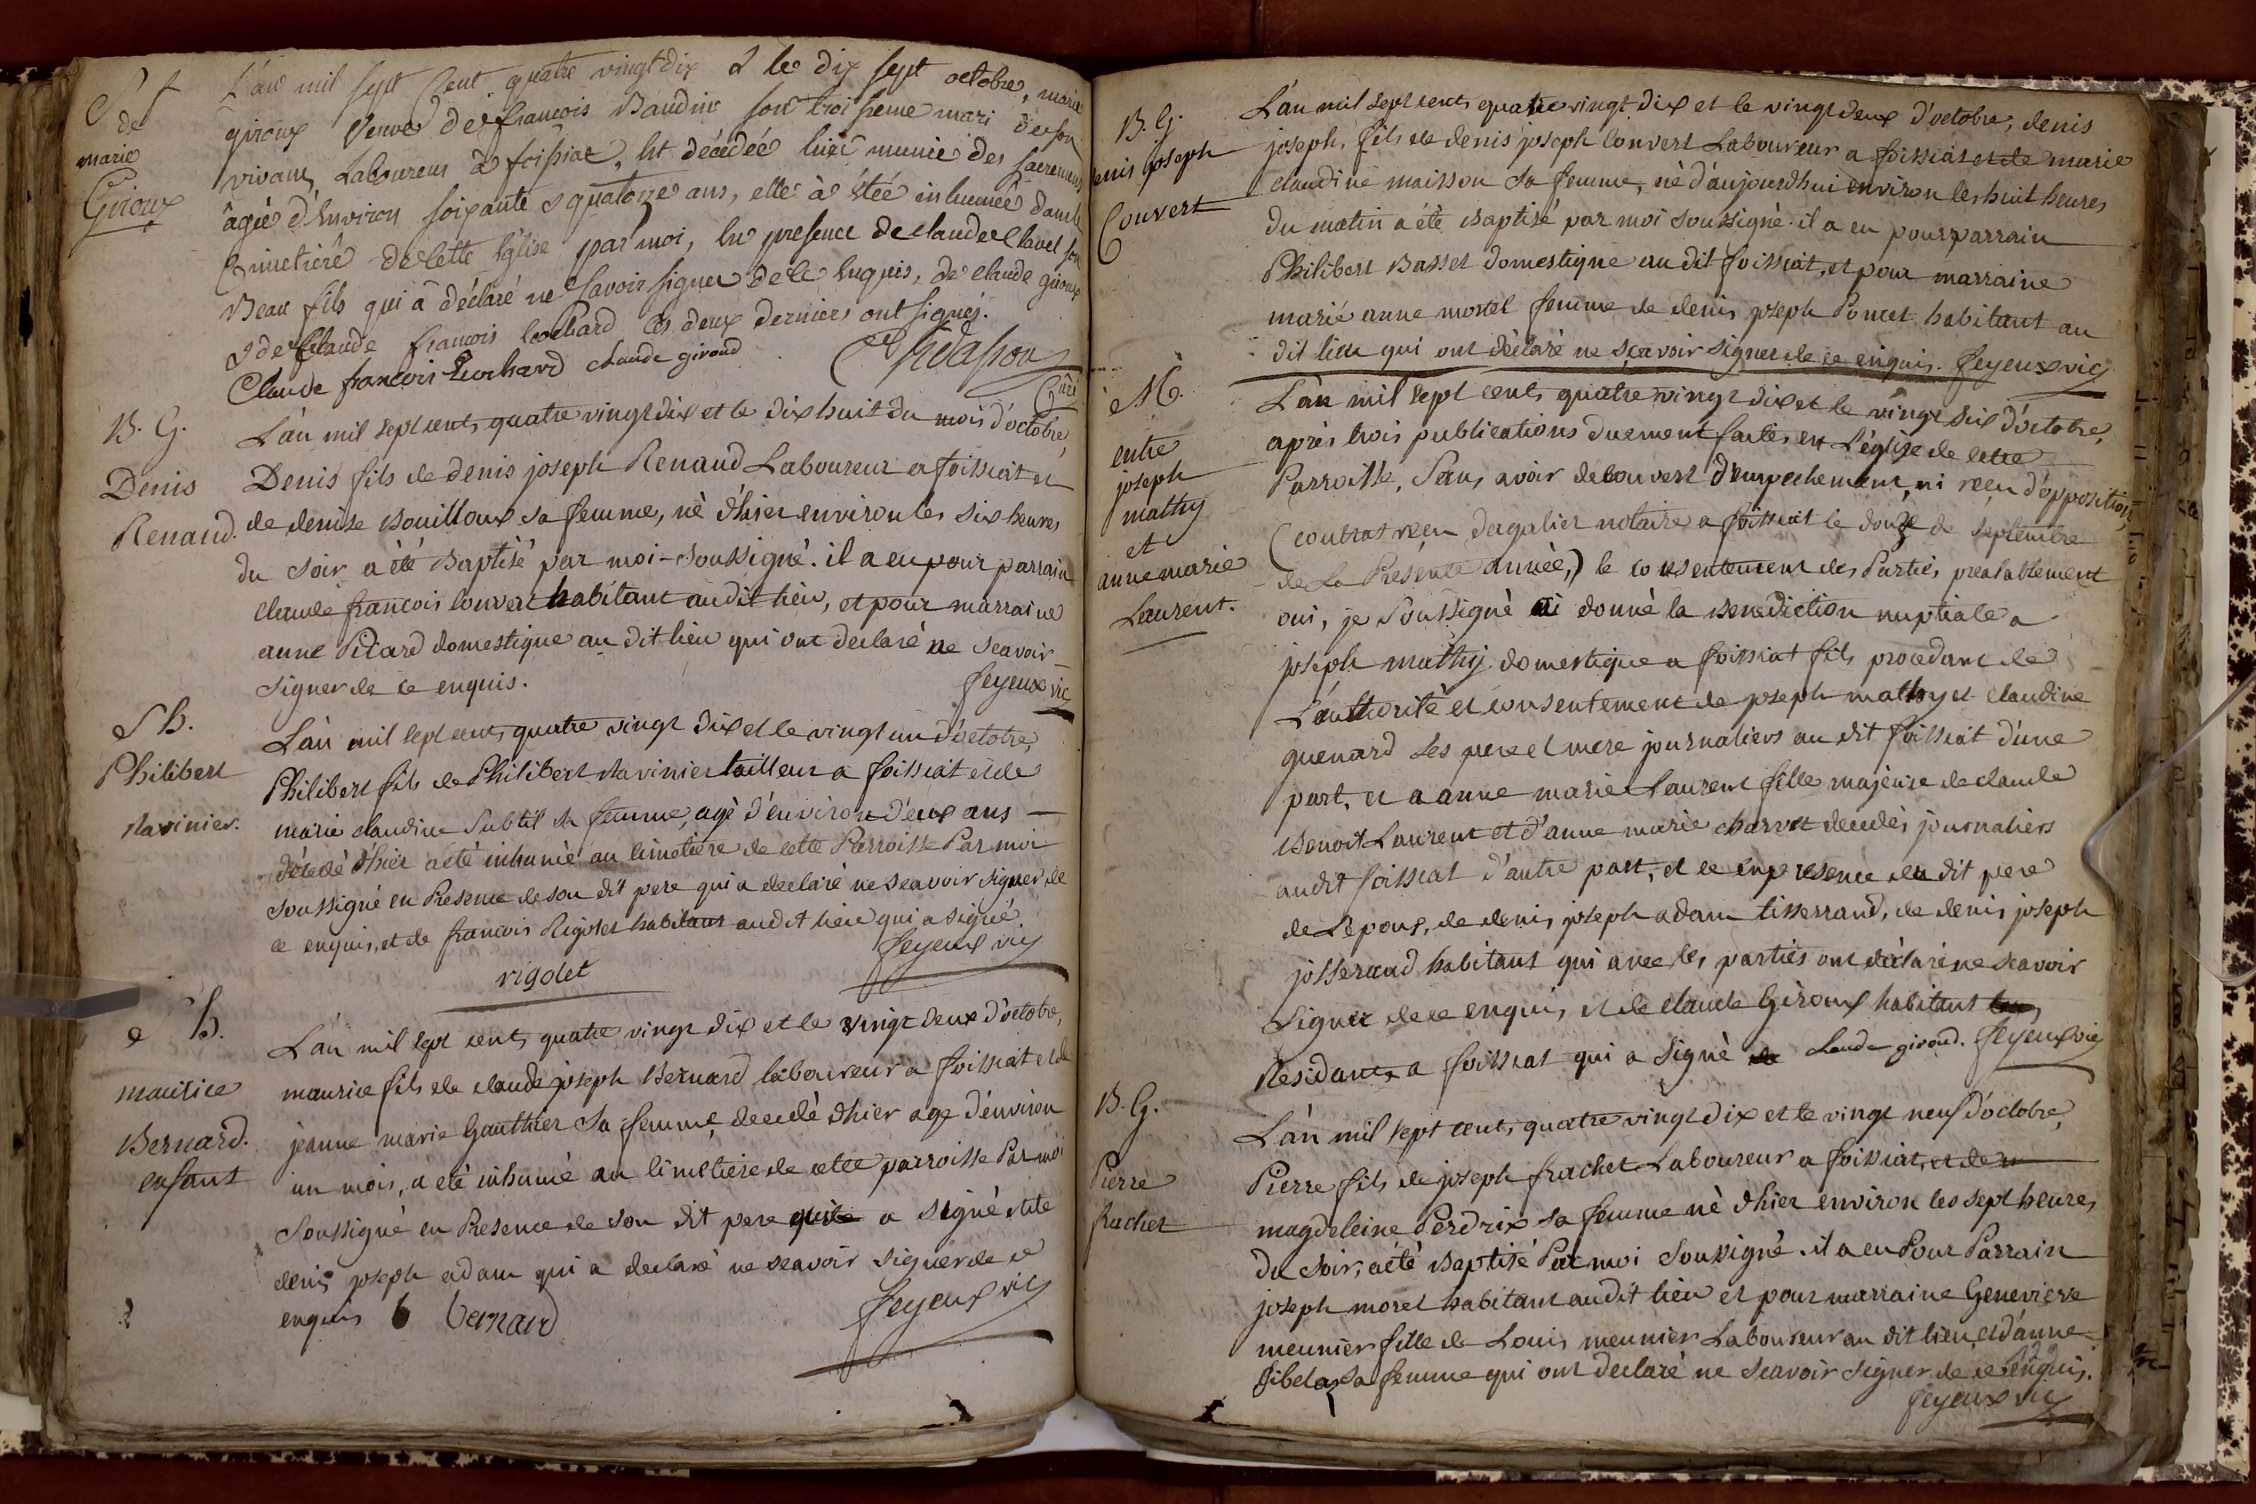 S f
de
marie
Giroux
L'an mil sept Cent quatre vingt dix & le dix sept octobre, marie
giroux Veuve de francois Baudin son troisieme mari de son
vivant Laboureur à foissiat, Est décédée hier munie des sacremens
âgée d'Environ soixante & quatorze ans, elle à étée inhumée dans le
Cimetiére de Cette Eglise par moi, En presence de claude Clavel son
Beau fils qui à déclaré ne Savoir signer de ce Enquis, de claude giroux
& de Claude francois Cochard Ces deux derniers ont signés.
Claude francois Cochard claude giroud
Curé
B. G.
Denis
Renaud.
L'an mil sept cent, quatre vingt dix et le dix huit du mois d'octobre,
Denis fils de denis joseph Renaud Laboureur a foissiat et
de denise Bouilloux sa femme, nè d'hier environ les six heures
du soir a èté Baptisè par moi-soussigné. il a eu pour parrain
claude francois Convert habitant audit lieu, et pour marraine
anne Picard domestique au dit lieu qui ont declaré ne scavoir
signer de ce enquis.
feyeux vic
S h.
Philibert
Ravinier.
L'an mil sept cent, quatre vingt dix et le vingt un d'octobre,
Philibert fils de Philibert Ravinier tailleur a foissiat et de
marie claudine Subtil sa femme, agè d'environ deux ans
décédé d'hier a eté inhumè au cimetiere de cette Parroisse Par moi
soussigné en Presence de son dit pere qui a declaré ne scavoir signer de
ce enquis, et de francois Rigolet habitant audit lieu qui a signé
feyeux vic
rigolet
S h.
maurice
Bernard.
enfant
L'an mil sept cent, quatre vingt dix et le vingt deux d'octobre,
maurice fils de claude joseph Bernard laboureur a foissiat et de
jeanne marie Gauthier sa femme, decedé d'hier agé d'environ
un mois, a eté inhumé au cimetiere de cette parroisse Par moi
Soussigné en Presence de son dit pere qui a signé et de
denis joseph adam qui a declaré ne scavoir signer de ce
enquis b bernard
feyeux vic
B. G.
denis joseph
Convert
L'an mil sept cent, quatre vingt dix et le vingt deux d'octobre, denis
joseph, fils de denis joseph Convert Laboureur a foissiat et de marie
claudine maisson sa femme, nè d'aujourdhui environ les huit heures
du matin a été Baptisé par moi soussigné. il a eu pour parrain
Philibert Basset domestique au dit foissiat, et pour marraine
marie anne morel femme de denis joseph Poncet habitant au
dit lieu qui ont dèclaré ne sçavoir signer de ce enquis. feyeux vic
M.
entre
joseph
mathy
et
anne marie
Laurent.
L'an mil sept cent, quatre vingt dix et le vingt six d'octobre,
après trois publications duement faites en L'église de cette
Parroisse, Sans avoir decouvert d'empechement, ni reçu d'opposition,
(contrat reçu dagalier notaire a foissiat le douze de septembre
de La Presente année,) le consentement des Parties prealablement
oui, je soussigné ai donné la Benediction nuptiale a
joseph mathy domestique a foissiat fils procedant de
L'authorité et consentement de joseph mathy et claudine
guenard ses pere et mere journaliers au dit foissiat d'une
part, et a anne marie Laurent fille majeure de claude
Benoit Laurent et d'anne marie charvet decedés journaliers
audit foissiat d'autre part, et ce en presence du dit pere
de L'epoux, de denis joseph adam tisserand, de denis joseph
josserand habitant qui avec les parties ont déclaré ne scavoir
signer de ce enquis, et de claude Giroux habitant
Residant a foissiat qui a signè Claude giroud. feyeux vic
B. G.
Pierre
frachet
L'an mil sept cent, quatre vingt dix et le vingt neuf d'octobre,
Pierre fils de joseph frachet Laboureur a foissiat, et de
magdeleine Perdrix sa femme nè d'hier environ les sept heures
du soir, a été Baptisé Par moi soussigné. il a eu Pour Parrain
joseph morel habitant audit lieu et pour marraine Genevieve
meunier fille de Louis meunier Laboureur au dit lieu et d'anne
Pibelas sa femme qui ont declaré ne scavoir signer de ce enquis.
feyeux vic